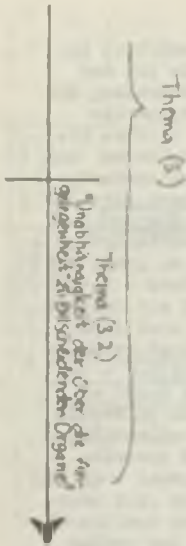 Thema (3)
Thema (3.2)
"Unabhängigkeit der über die An-
gelegenheit entscheidenden Organe"